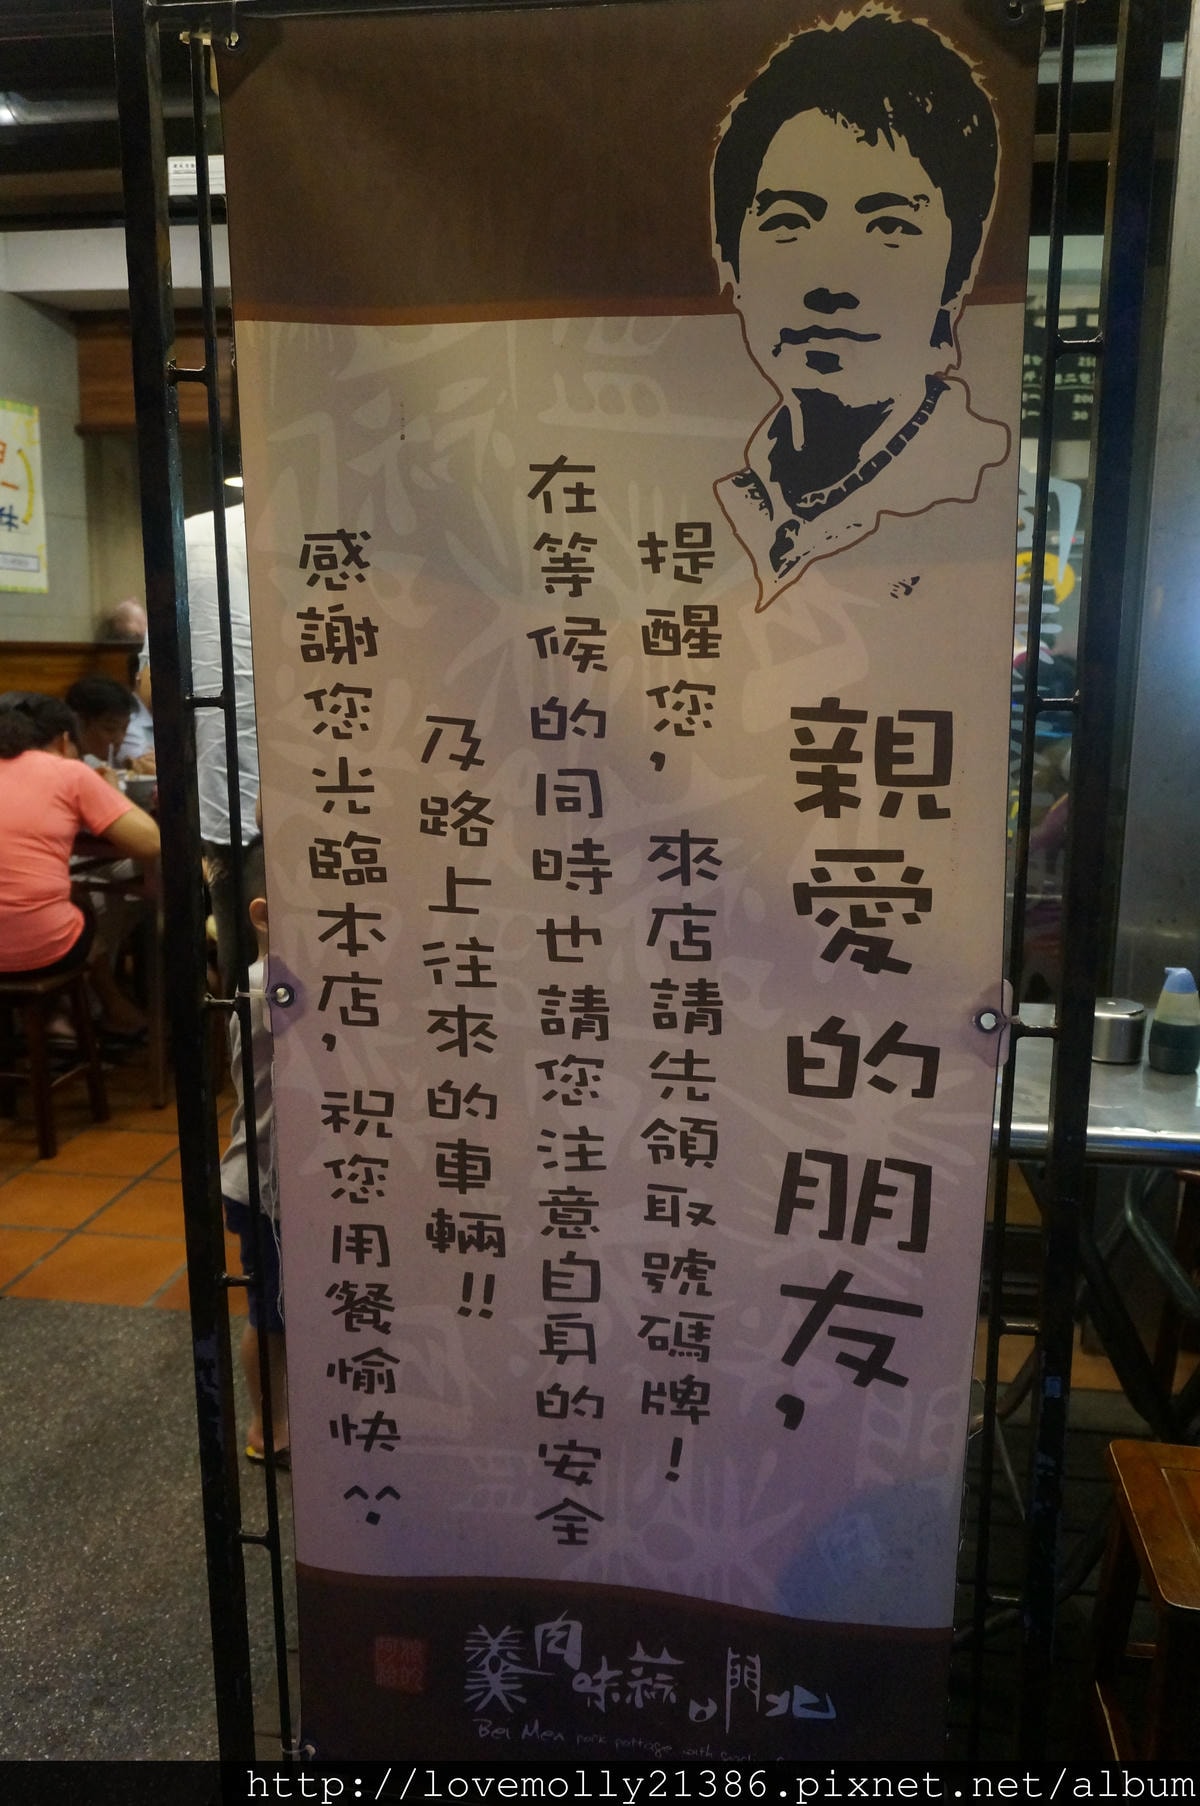 親愛的朋友,
提醒您,來店請先領取號碼牌!
在等候的同時也請您注意自身的安全
及路上往來的車輛!!
感謝您光臨本店,祝您用餐愉快^^
北門蒜味肉羹
Bei Men pork pottage with
http://lovemolly21386.pixnet.net/album